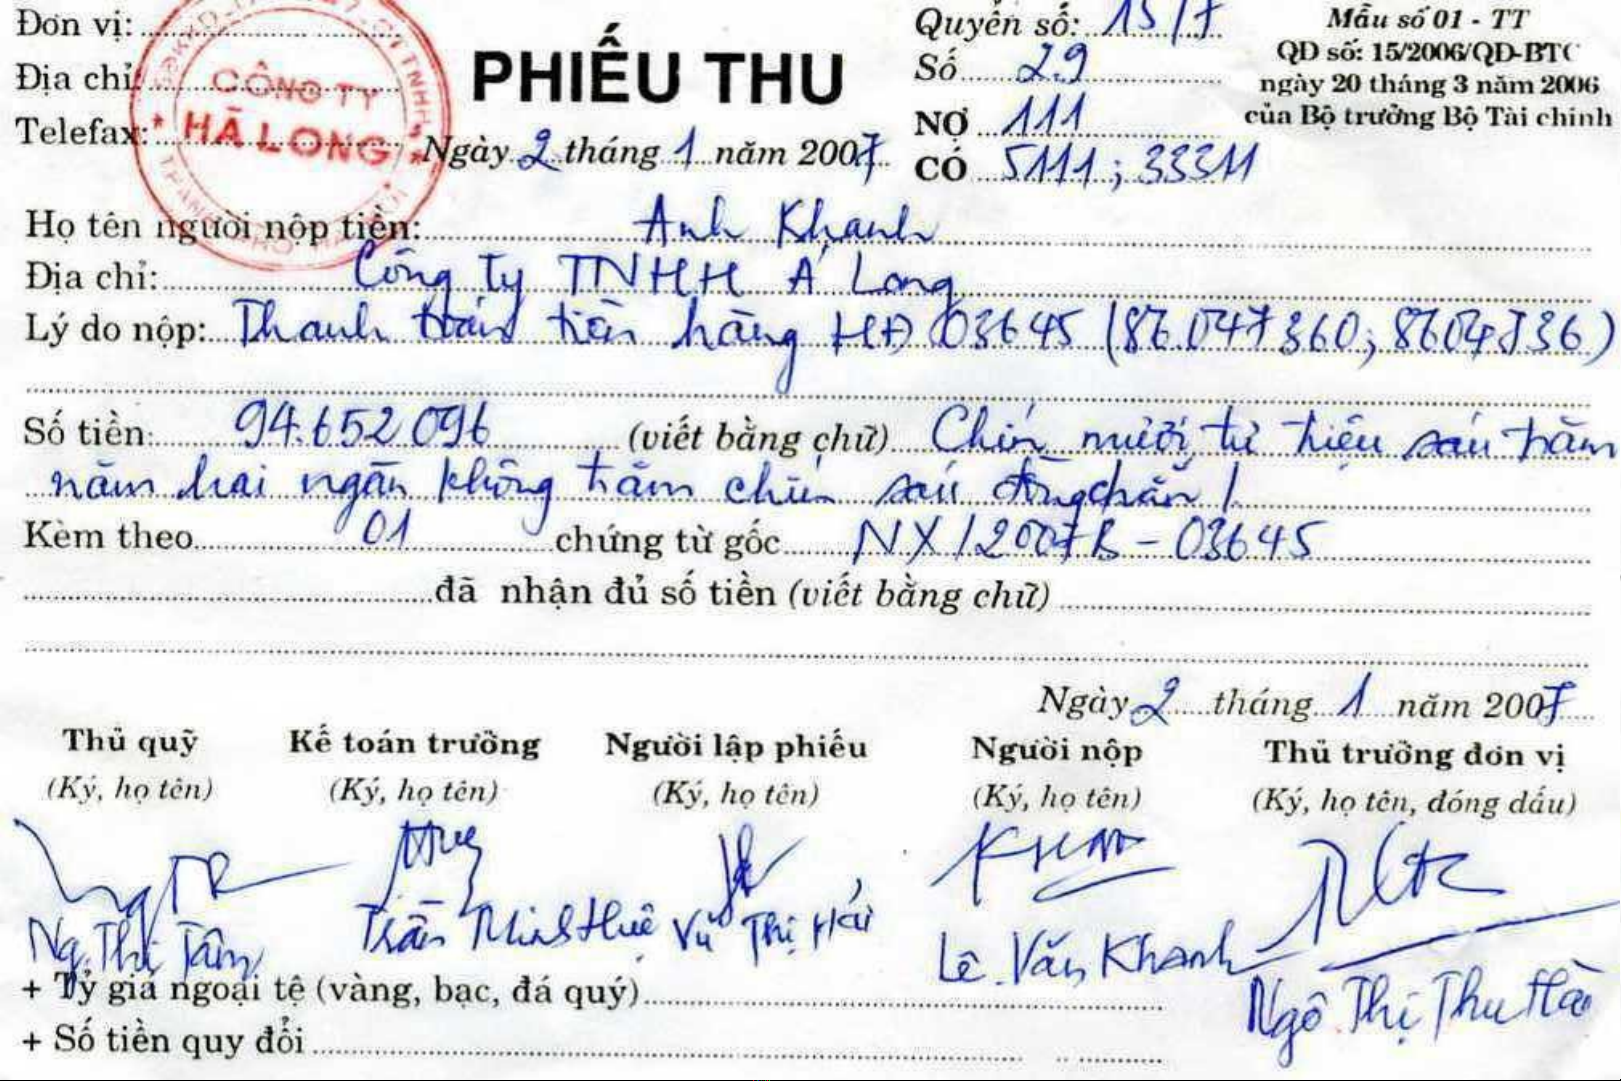 Đơn vị:
Quyển số: 15/7
Mẫu số 01 - TT
Địa chỉ:
PHIẾU THU
Số 29
QD số: 15/2006/QD-BTC
ngày 20 tháng 3 năm 2006
CÔNG TY
HÀ LONG
Telefax:
NỢ 111
của Bộ trưởng Bộ Tài chính
Ngày 2 tháng 1 năm 2007
CÓ 5111; 33311
Họ tên người nộp tiền: Anh Khanh
Địa chỉ: Công ty TNHH Á Long
Lý do nộp: Thanh toán tiền hàng HĐ 03645 (86.047360; 8604736)
Số tiền: 94.652.096 (viết bằng chữ) Chín mươi tư triệu sáu trăm
năm hai ngàn không trăm chín sáu đồng chẵn /.
Kèm theo 01 chứng từ gốc NX/2007B - 03645
đã nhận đủ số tiền (viết bằng chữ)
Ngày 2 tháng 1 năm 2007
Thủ quỹ Kế toán trưởng Người lập phiếu Người nộp Thủ trưởng đơn vị
(Ký, họ tên) (Ký, họ tên) (Ký, họ tên) (Ký, họ tên) (Ký, họ tên, đóng dấu)
Ng. Thị Tâm Trần Minh Huệ Vũ Thị Hải Lê Văn Khanh Ngô Thị Thu Hà
+ Tỷ giá ngoại tệ (vàng, bạc, đá quý)
+ Số tiền quy đổi